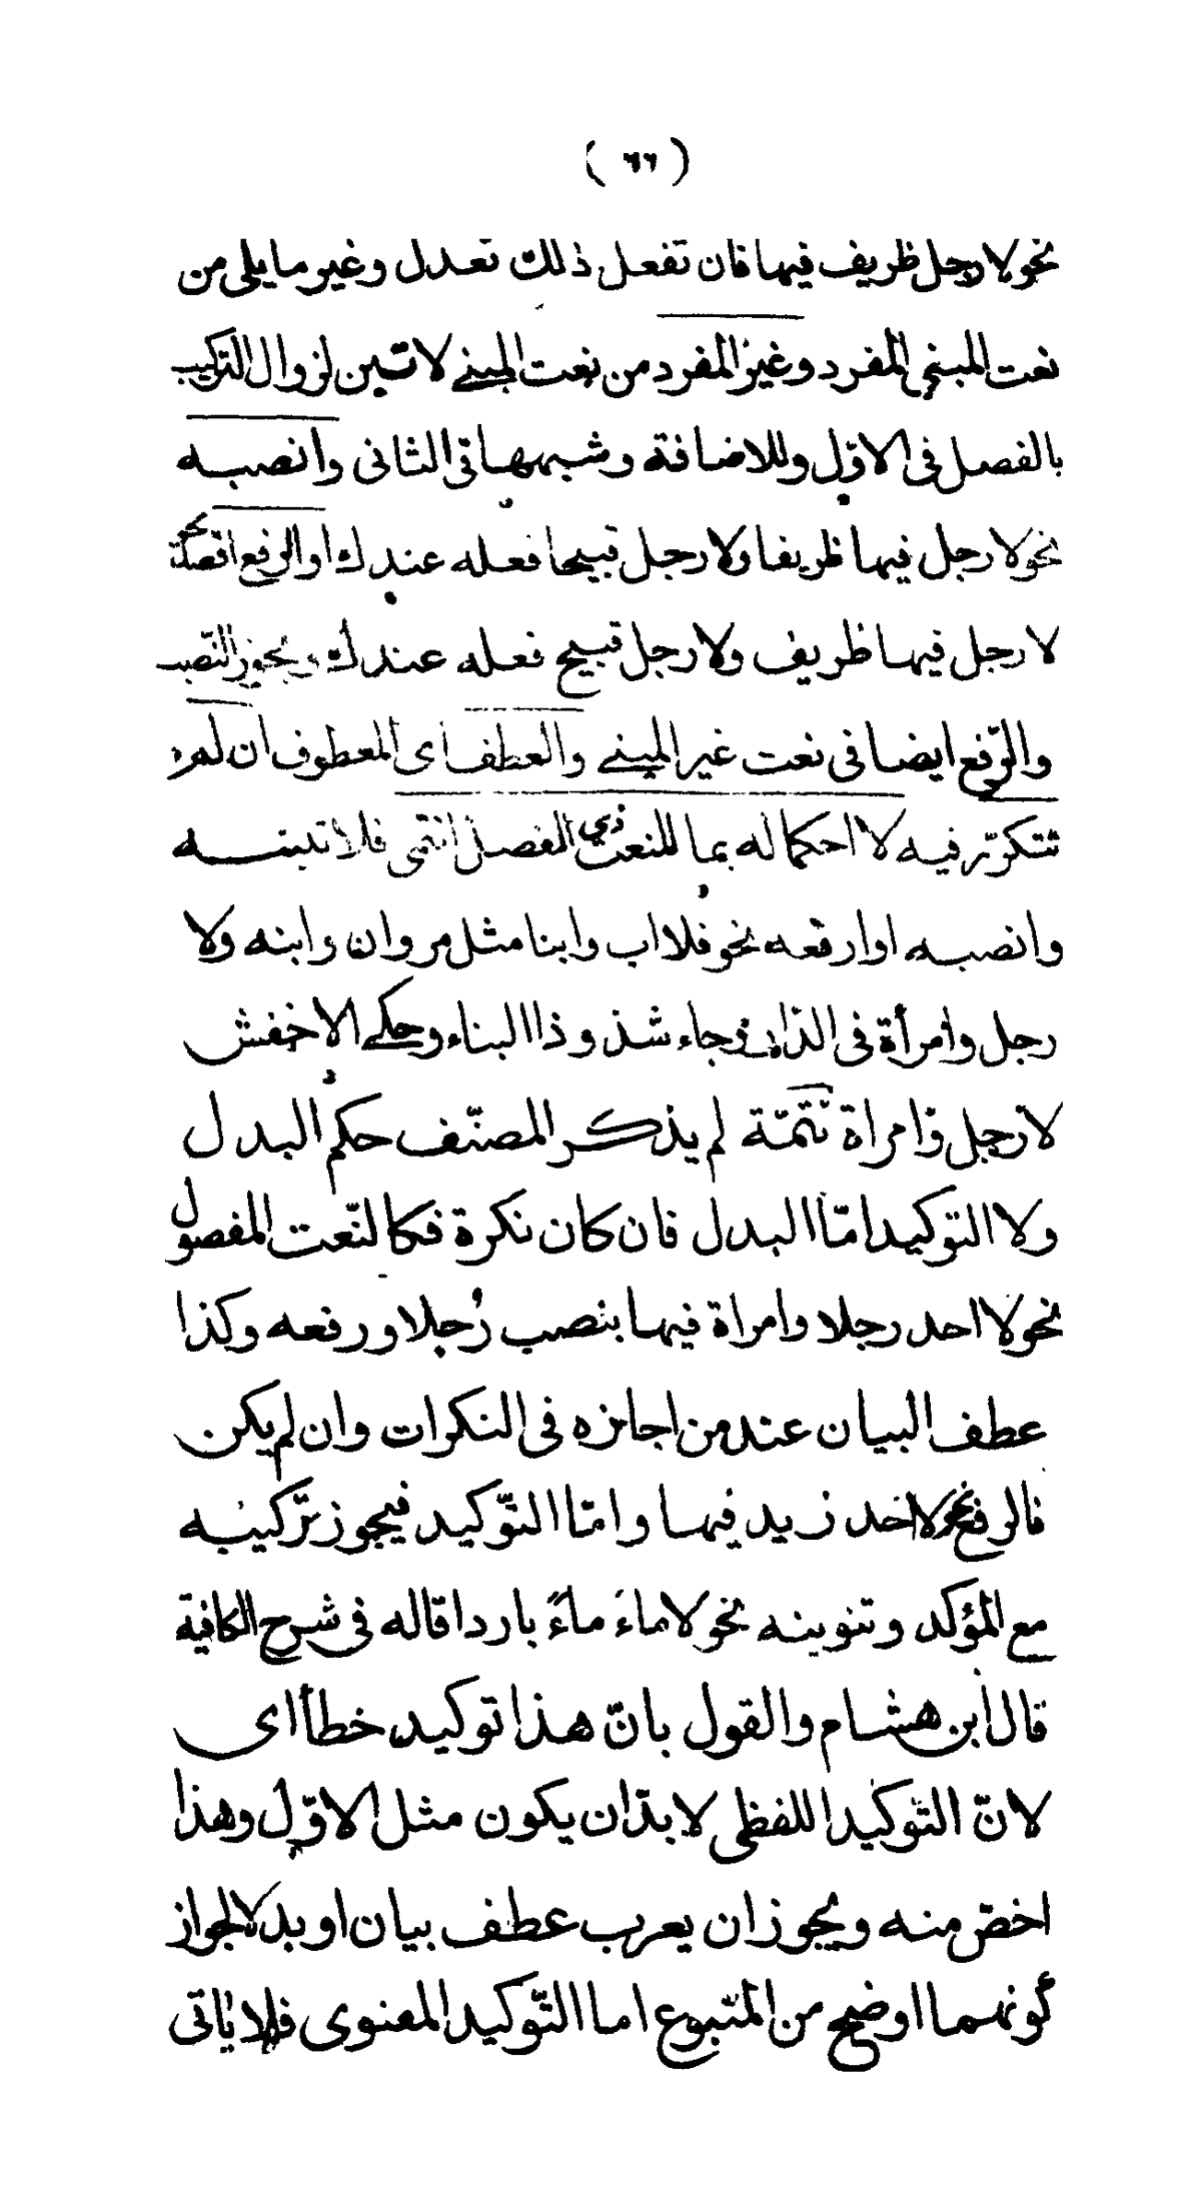 ( ٦٦ )
نحو لا رجل ظريف فيها فان تفعل ذلك تعدل وغير ما يلى من
نعت المبنى المفرد وغير المفرد من نعت المبنى لا تبن لزوال التركيب
بالفصل فى الاوّل وللاضافة وشبهها فى الثانى وانصبه
نحو لا رجل فيها ظريفا ولا رجل قبيحا فعله عندك او الرفع اقصد نحو
لا رجل فيها ظريف ولا رجل قبيح فعله عندك ويجوز النّصب
والرّفع ايضا فى نعت غير المبنى والعطف اى المعطوف ان لم
تتكرّر فيه لا احكما له بما للنعت ذى الفصل انتمى فلا تبنه
وانصبه او ارفعه نحو فلا اب وابنا مثل مروان وابنه ولا
رجل وامرأة فى الدار وجاء شذوذا البناء وحكى الاخفش
لا رجل وامراة تتمّة لم يذكر المصنّف حكم البدل
ولا التوكيد امّا البدل فان كان نكرة فكالنّعت المفصول
نحو لا احد رجلا وامراة فيها بنصب رُجلا ورفعه وكذا
عطف البيان عند من اجازه فى النكرات وان لم يكن
فالرفع نحو لا احد زيد فيها وامّا التّوكيد فيجوز تركيبه
مع المؤكد وتنوينه نحو لا ماءَ ماءً باردا قاله فى شرح الكافية
قال ابن هشام والقول بانّ هذا توكيد خطأ اى
لانّ التّوكيد اللفظى لا بدّ ان يكون مثل الاوّل وهذا
اخصّ منه ويجوز ان يعرب عطف بيان او بدلا لجواز
كونهما اوضح من المتبوع اما التّوكيد المعنوى فلا ياتى